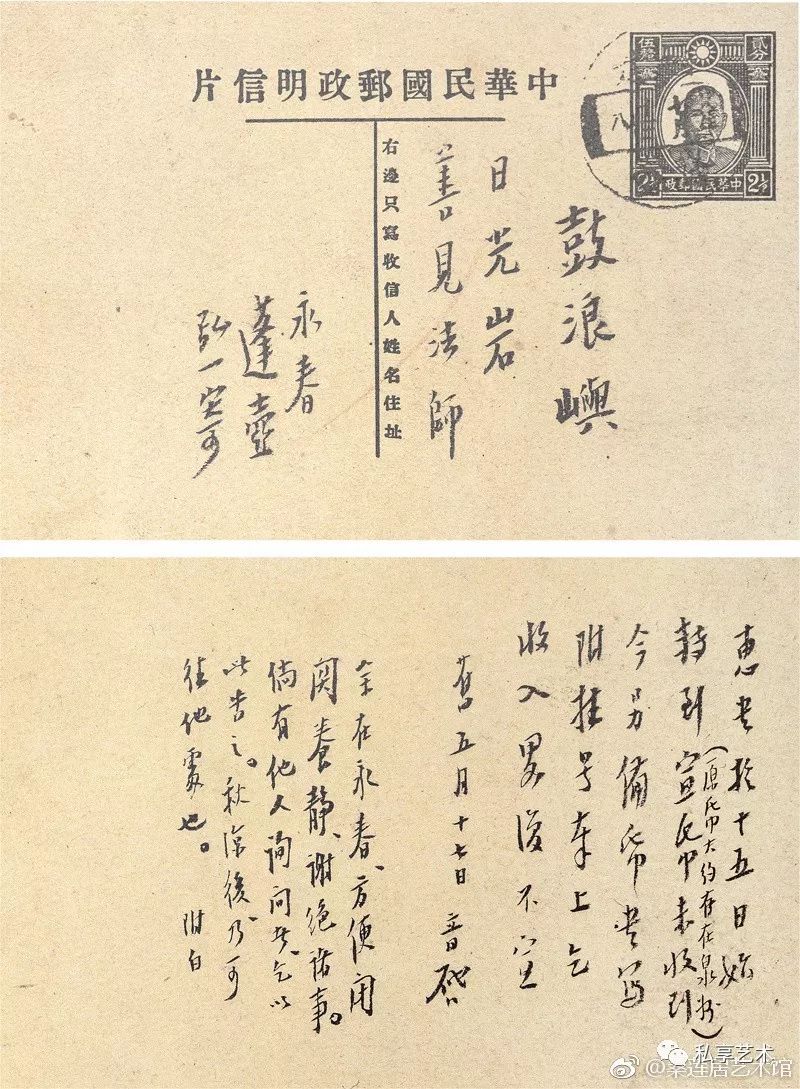 中華民國郵政明信片
貳分
伍釐
2½
2½
中華民國郵政
鼓浪嶼
日光岩
善見法師
右邊只寫收信人姓名住址
永春
蓬壺
弘一寄
惠書於十五日始
(原帋大約存在泉州)
轉到宣帋未收到
今另備帋書寫
附挂号奉上乞
收入畧復不宣
舊五月十七日 音啓
余在永春、方便閉
関養静、謝絕諸事。
倘有他人詢問者、乞以
此告之。秋涼後、乃可
往他處也。附白
私享艺术
@秦连居艺术馆